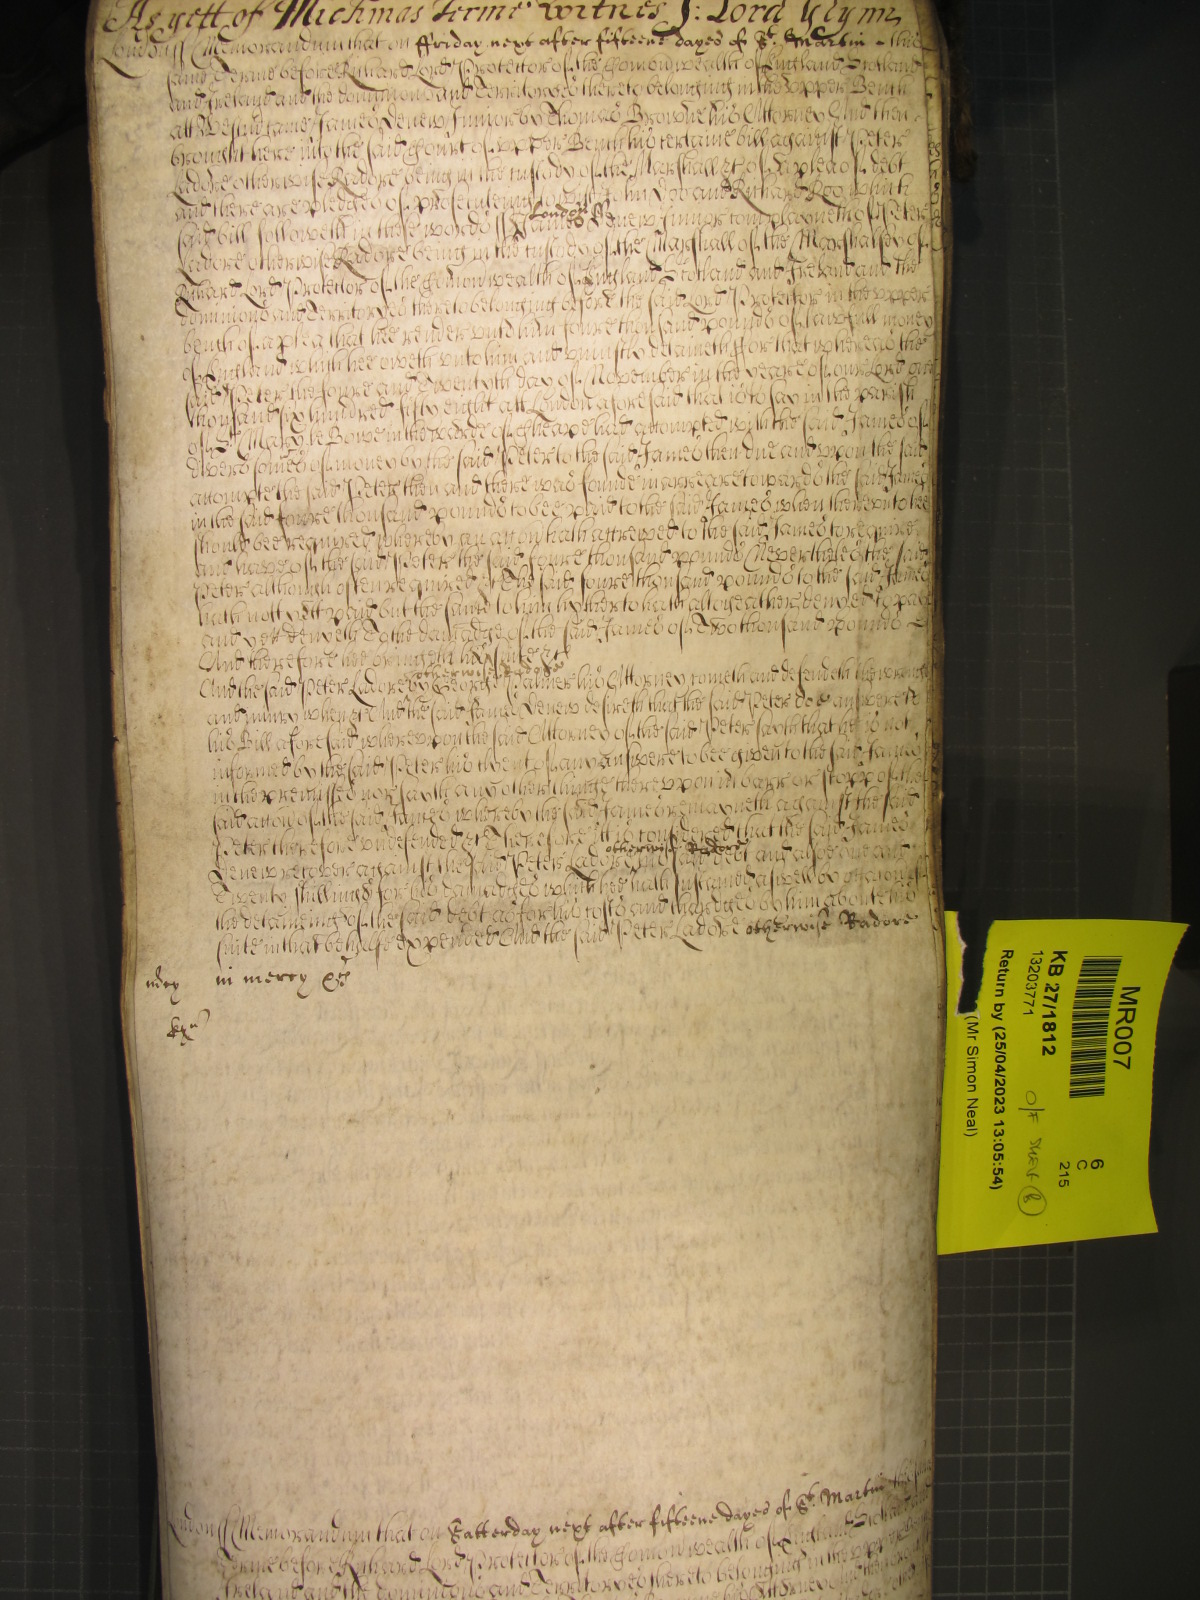 As yett of Michmas Terme Witnes J: Lord Glynn
London ss Memorandum that on ffriday next after fifteene dayes of St. Martin this
same Terme before Richard Lord Protector of the Comonwealth of England Scotland
and Ireland and the dominions and Territoryes thereto belonging in the Vpper Bench
att Westm̄ came James Denew Junior by Thomas Browne his Attorney And then
brought here into the said Court of vpper Bench his certaine bill against Peter
Ladore otherwise Radore being in the custody of the Marshall &c of a plea of debt
and there are pledges of prosecuteing to witt John Doo and Richard Roo which
said bill followeth in these words ss London ss James Denew Junior complayneth of Peter
Ladore otherwise Radore being in the custody of the Marshall of the Marshalsey of
Richard Lord Protector of the Comonwealth of England Scotland and Ireland and the
dominions and Territoryes thereto belonging before the said Lord Protector in the vpper
bench of a plea that hee render vnto him foure thousand pounds of lawfull money
of England which hee oweth vnto him and vniustly detaineth ffor that whereas the
said Peter the foure and Twentyth day of November in the yeare of our Lord one
thousand six hundred fifty eight att London aforesaid that is to say in the parish
of St Mary le Bowe in the warde of Cheape had accompted with the said James of
divers somes of money by the said Peter to the said James then due and vpon the said
accompte the said Peter then and there was founde in arreare towards the said James
in the said foure thousand pounds to bee paid to the said James when therevnto hee
should bee required whereby an action hath accrewed to the said James to require
and have of the said Peter the said foure thousand pounds Neverthles the said
Peter although often required &c the said foure thousand pounds to the said James
hath nott yett paid but the same to him hitherto hath altogeather denyed to pay
and yet denyeth To the damadge of the said James of Two thousand pounds
And therefore hee bringeth his suite &c
And the said Peter Ladore otherwise Radore by George Palmer his Attorney cometh and defendeth the wronge
and iniury when &c And the said James Denew desireth that the said Peter doe answere to
his Bill aforesaid wherevpon the said Attorney of the said Peter sayth that he is not
informed by the said Peter his Clyent of any answere to bee given to the said James
in the premisses nor sayth any other thinge therevpon in barr or stopp of the
said accon of the said James whereby the said James remayneth against the said
Peter therefore vndefended &c Therefore it is considered that the said James
Denew recover against the said Peter Ladore otherwise Radore his said debt and alsoe one and
Twenty shillings for his damadges which hee hath sustained aswell by occasion of
the detaineing of the said debt as for his costs and chardges by him aboute his
suite in that behalfe expended And the said Peter Ladore otherwise Radore
mcy in mercy &c
London ss Memorandum that on Satterday next after fifteene dayes of St. Martin this same
Terme before Richard Lord Protector of the Comonwealth of England Scotland
Ireland and the dominions and Territoryes thereto belonging in the vpper
MR007
6
C
215
KB 27/1812
13203771
O/F
Return by (25/04/2023 13:05:54)
(Mr Simon Neal)